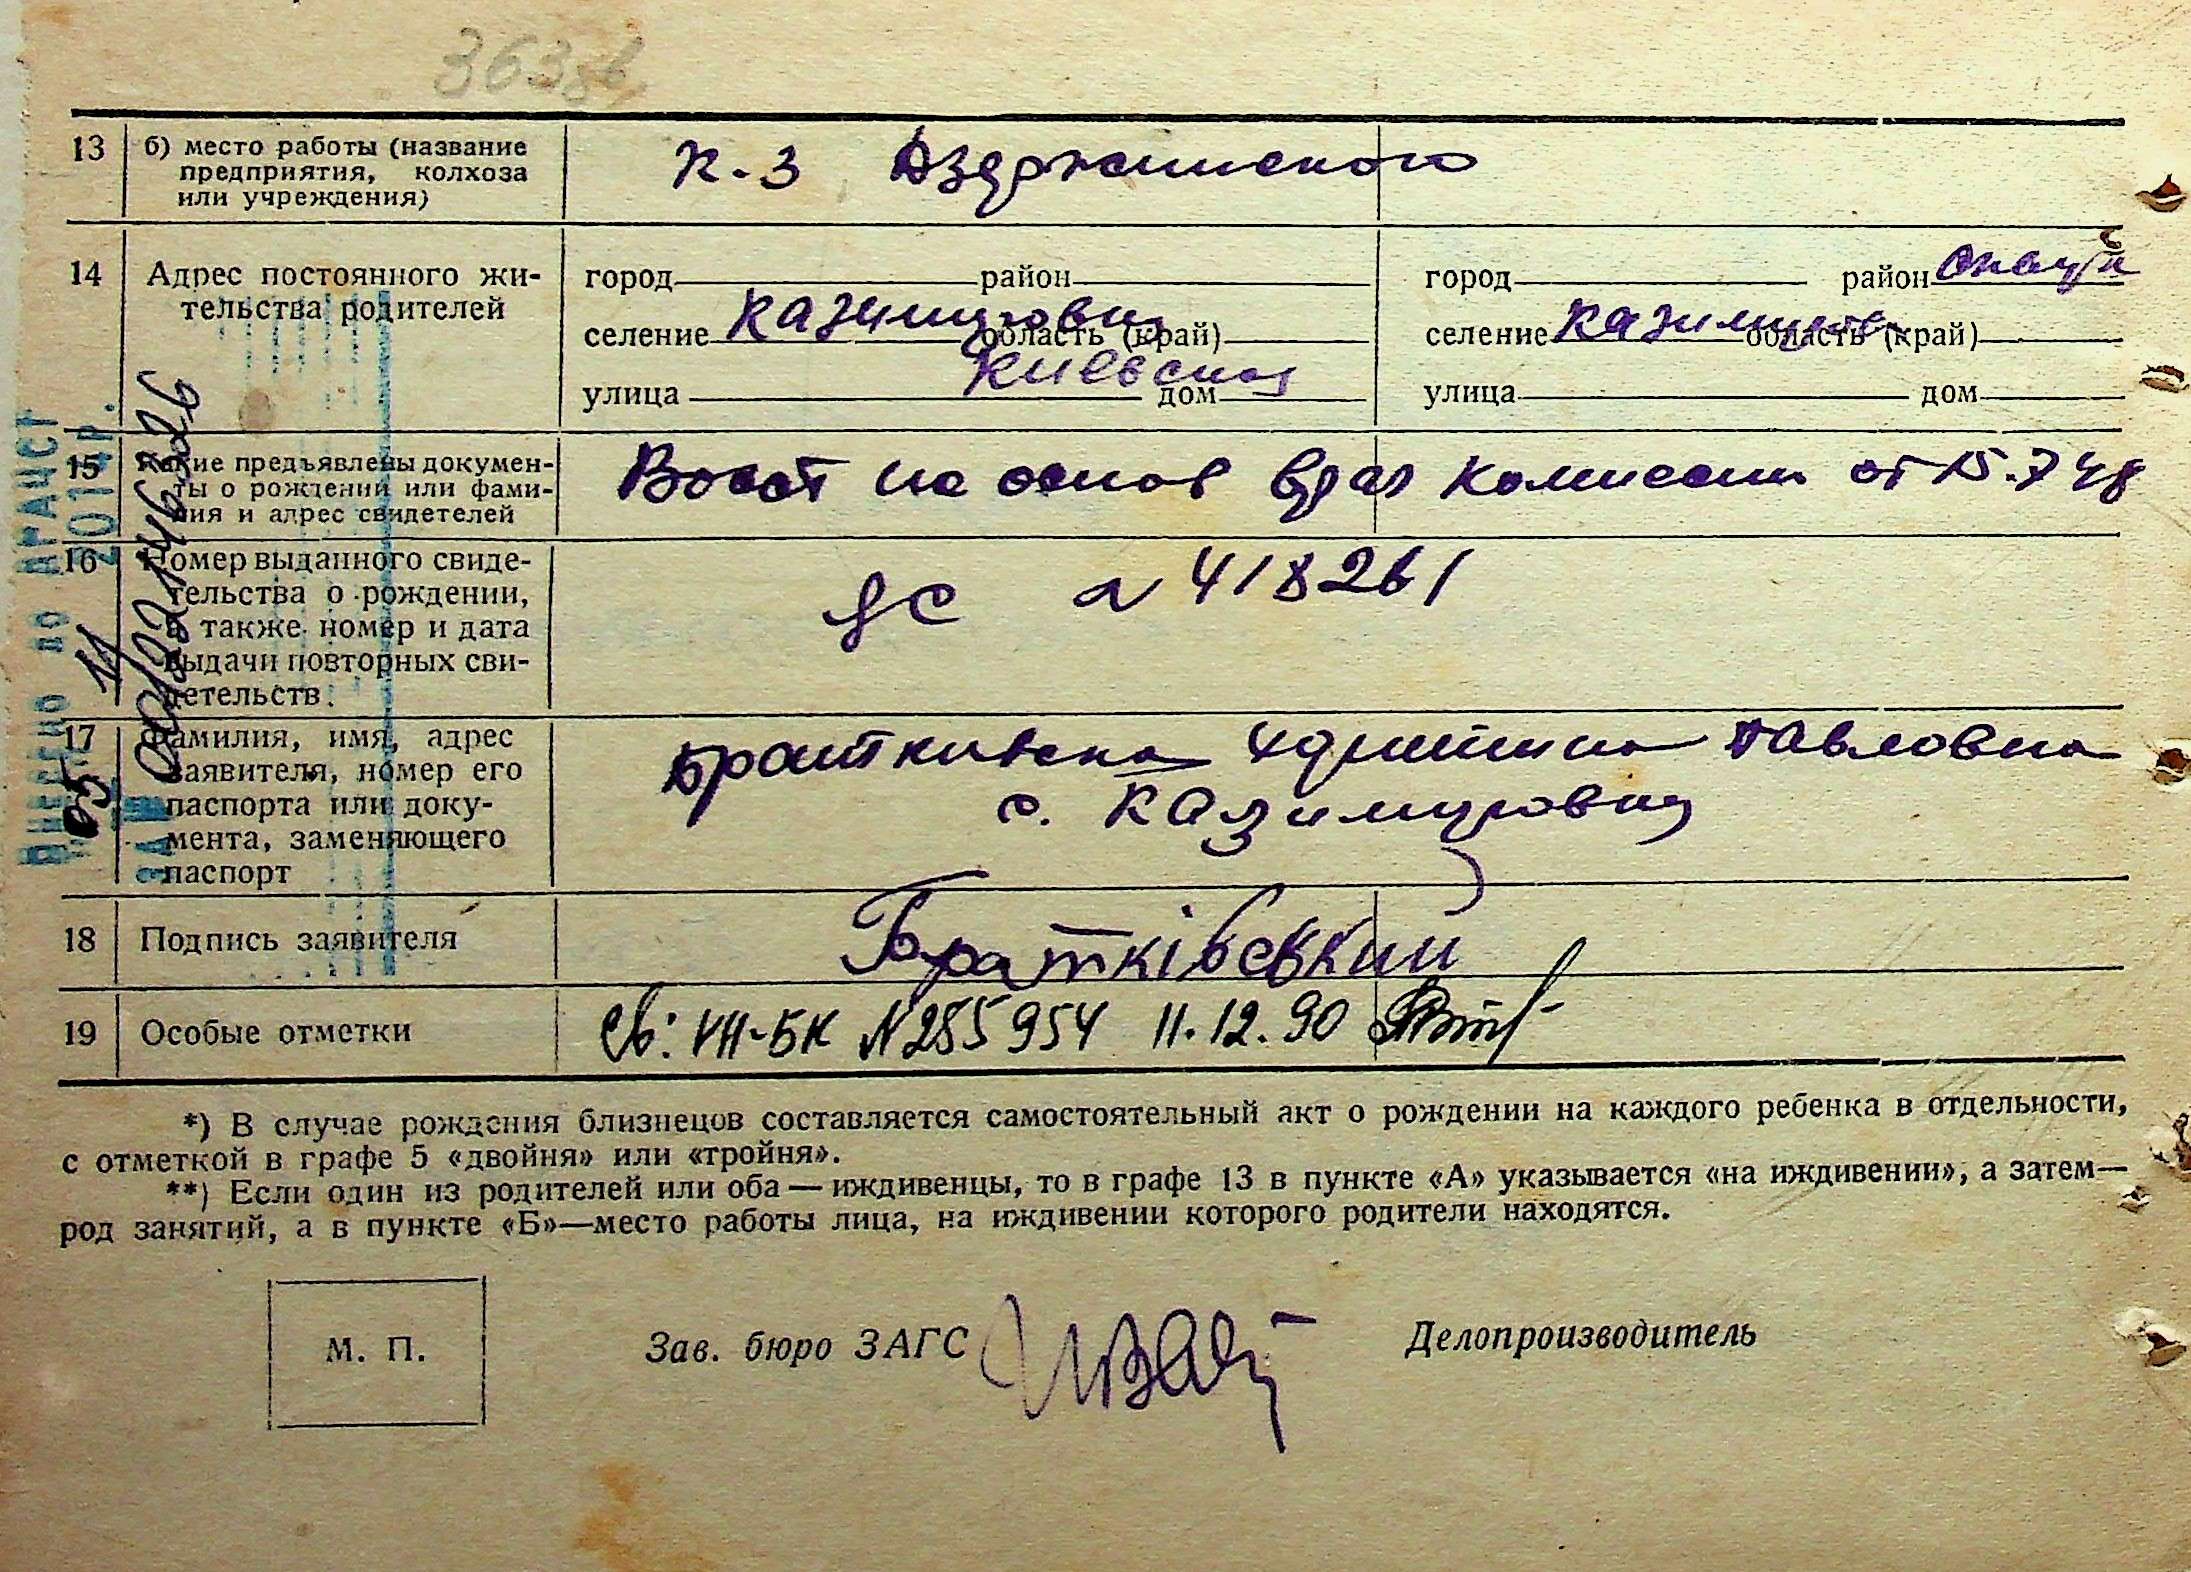 363
13 б) место работы (название
предприятия, колхоза
или учреждения)
к-з Дзержинского
14 Адрес постоянного жи-
тельства родителей
город район
селение Казимировка область (край)
Киевская
улица дом
город район
селение область (край)
улица дом
15 Какие предъявлены докумен-
ты о рождении или фами-
лия и адрес свидетелей
Восст на основ врач комиссии от 15.7 48
16 Номер выданного свиде-
тельства о рождении,
а также номер и дата
выдачи повторных сви-
детельств.
N 418261
17 Фамилия, имя, адрес
заявителя, номер его
паспорта или доку-
мента, заменяющего
паспорт
Павловна
с. Казимировка
18 Подпись заявителя
Братківський
19 Особые отметки
Св: VII-БК N 285954 11.12.90
*) В случае рождения близнецов составляется самостоятельный акт о рождении на каждого ребенка в отдельности,
с отметкой в графе 5 «двойня» или «тройня».
**) Если один из родителей или оба — иждивенцы, то в графе 13 в пункте «А» указывается «на иждивении», а затем—
род занятий, а в пункте «Б»—место работы лица, на иждивении которого родители находятся.
М. П.
Зав. бюро ЗАГС
Делопроизводитель
Внесено до ДРАЦСГ
05 11 2014р.